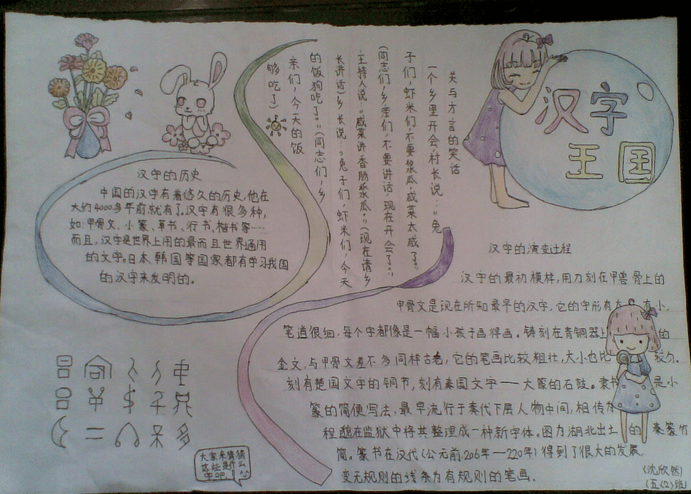 汉字
王国
关与方言的笑话
一个乡里开会,村长说:“兔
子们,虾米们,不要酱瓜,咸菜太咸了。”
(同志们,乡亲们,不要讲话,现在开会了。)
主持人说:“咸菜讲香肠酱瓜。”(现在请乡
长讲话)乡长说:“兔子们,虾米们,今天
的饭狗吃了。”(同志们,乡
亲们,今天的饭
够吃了)
汉字的历史
中国的汉字有着悠久的历史,他在
大约4000多年前就有了,汉字有很多种,
如:甲骨文、小篆、草书、行书、楷书等…
而且,汉字是世界上用的最而且世界通用
的文字,日本、韩国等国家都有学习我国
的汉字来发明的。
汉字的演变过程
汉字的最初模样,用刀刻在甲兽骨上的
甲骨文是现在所知最早的汉字,它的字形有大有小,
笔道很细,每个字都像是一幅小孩子画得画。铸刻在青铜器上的
金文,与甲骨文差不多同样古老,它的笔画比较粗壮,大小也比较匀。
刻有楚国文字的铜节,刻有秦国文字——大篆的石鼓。隶书是小
篆的简便写法,最早流行于秦代下层人物中间,相传
程邈在监狱中将其整理成一种新字体。图为湖北出土的秦篆竹
简。篆书在汉代(公元前206年—220年)得到了很大的发展
变无规则的线条为有规则的笔画。
大家来猜猜
这些是什么
字吧
(沈欣然)
(五(2)班)